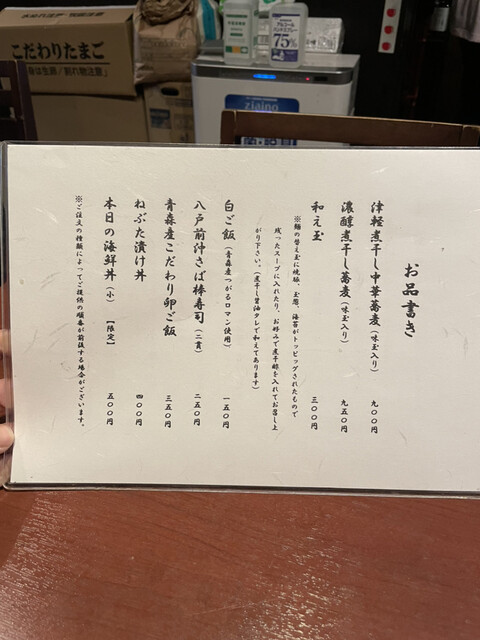 お品書き
津軽煮干し中華蕎麦（味玉入り） 九〇〇円
濃醇煮干し蕎麦（味玉入り） 九五〇円
和え玉 三〇〇円
※麺の替え玉に焼豚、玉葱、海苔がトッピングされたもので
残ったスープに入れたり、お好みで煮干酢を入れてお召し上
がり下さい。（煮干し醤油タレで和えてあります）
白ご飯（青森産つがるロマン使用） 一五〇円
八戸前沖さば棒寿司（二貫） 二五〇円
青森産こだわり卵ご飯 三五〇円
ねぶた漬け丼 四〇〇円
本日の海鮮丼（小）【限定】 五〇〇円
※ご注文の種類によってご提供の順番が前後する場合がございます。
こだわりたまご
身は生卵／割れ物注意
アルコール
ハンドスプレー
75%
ziaino